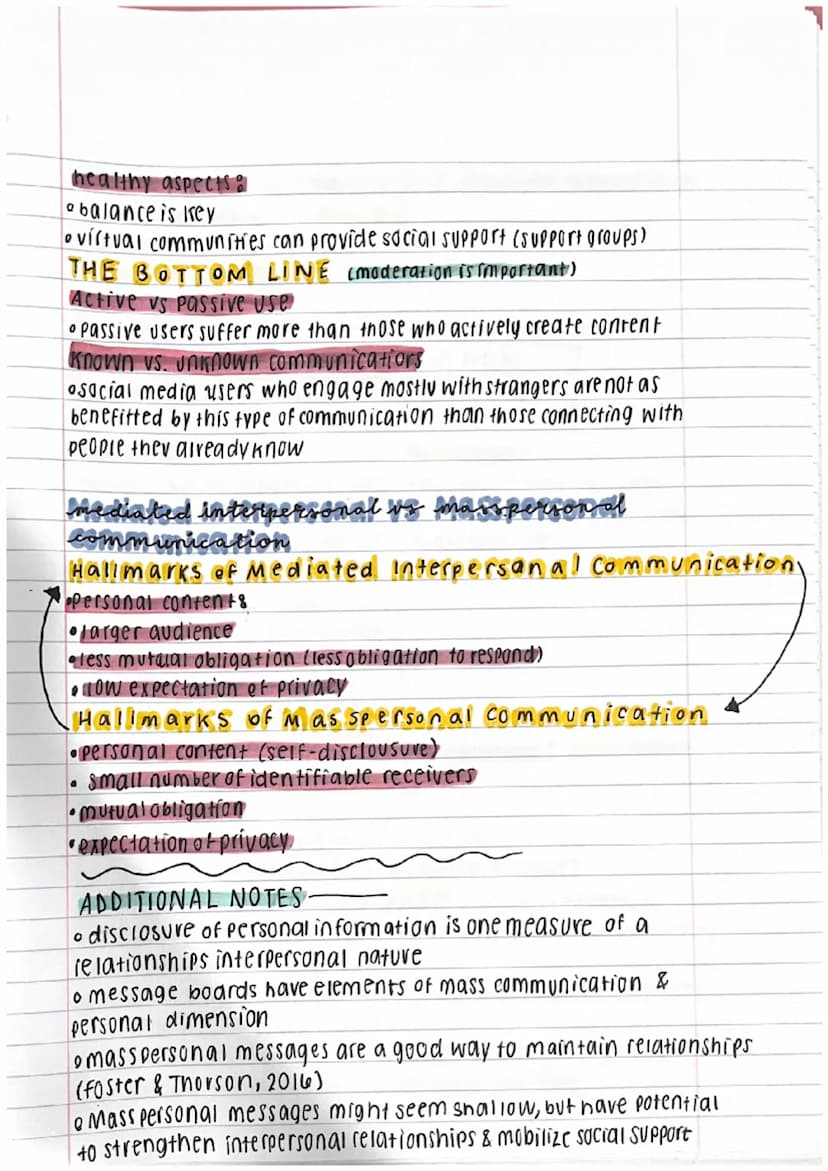 healthy aspects:
• balance is key
• virtual communities can provide social support (support groups)
THE BOTTOM LINE (moderation is important)
Active vs passive use
• passive users suffer more than those who actively create content
known vs. unknown communicatiors
• social media users who engage mostly with strangers are not as
benefitted by this type of communication than those connecting with
people they already know
mediated interpersonal vs masspersonal
communication
Hallmarks of Mediated Interpersanal Communication
• personal content &
• larger audience
• less mutual obligation (less obligation to respond)
• low expectation of privacy
Hallmarks of Masspersonal Communication
• personal content (self-disclousure)
• small number of identifiable receivers
• mutual obligation
• expectation of privacy
ADDITIONAL NOTES
• disclosure of personal information is one measure of a
relationships interpersonal nature
• message boards have elements of mass communication &
personal dimension
• masspersonal messages are a good way to maintain relationships
(foster & Thorson, 2016)
• Masspersonal messages might seem shallow, but have potential
to strengthen interpersonal relationships & mobilize social support